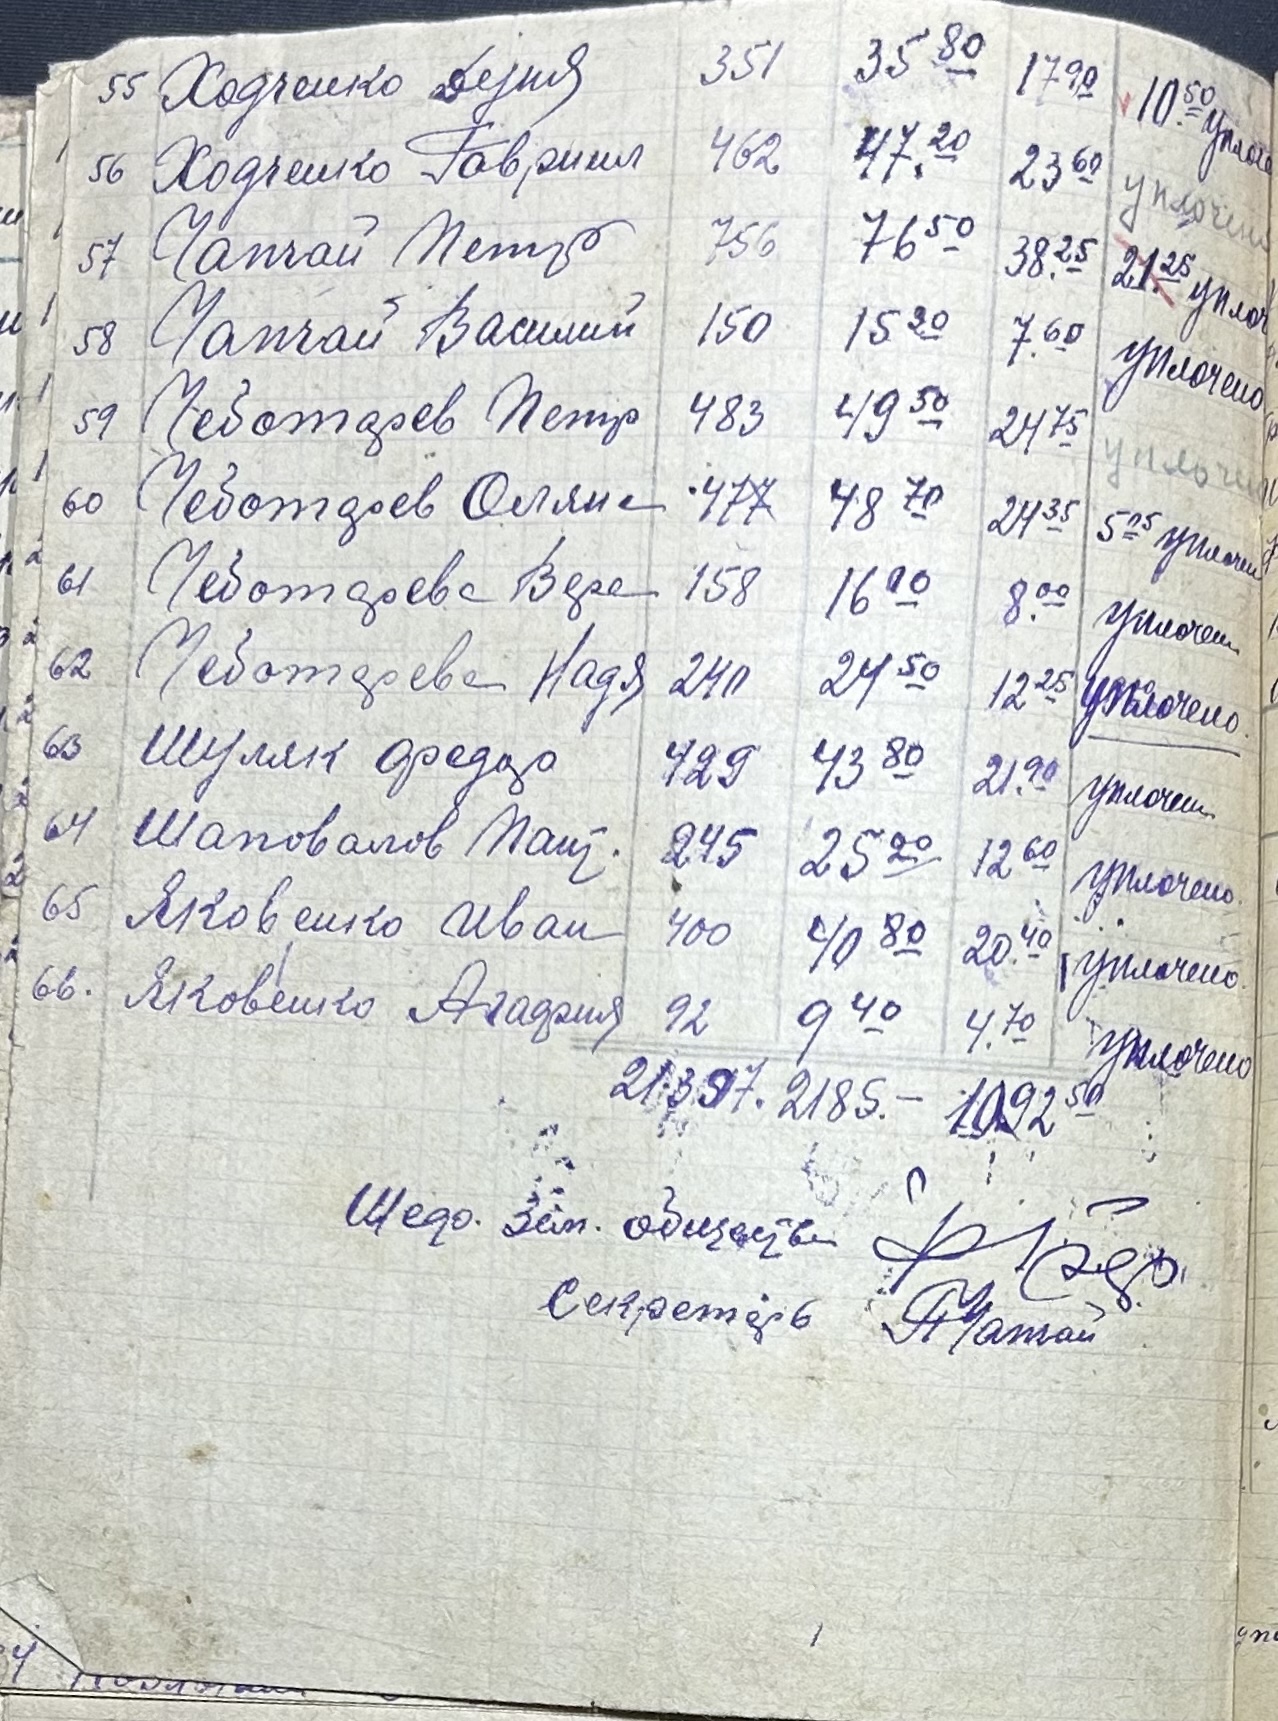 55 Ходченко 351 35 80 17 90 10.50 уплоче
56 Ходченко Гавриил 462 47.20 23 60 уплочено
57 Чапчай Петр 756 76 50 38.25 21.25 уплоч
58 Чапчай Василий 150 15 20 7.60 уплочено
59 Чеботарев Петр 483 49 50 24 75 уплочен
60 Чеботарев 477 48 70 24 35 5 05 уплочен
61 Чеботарева Вера 158 16 00 8.00 уплочен
62 Чеботарева Надя 240 24 50 12 25 уплочено.
63 Шуляк Федор 429 43 80 21.90 уплочен
64 Шаповалов Пант. 245 25 20 12 60 уплочено.
65 Яковенко Иван 400 40 80 20.40 уплочено.
66. Яковенко Агафия 92 9 40 4.70 уплочено
21397. 2185.- 1092 50
общества
Секретарь ПЧапчай